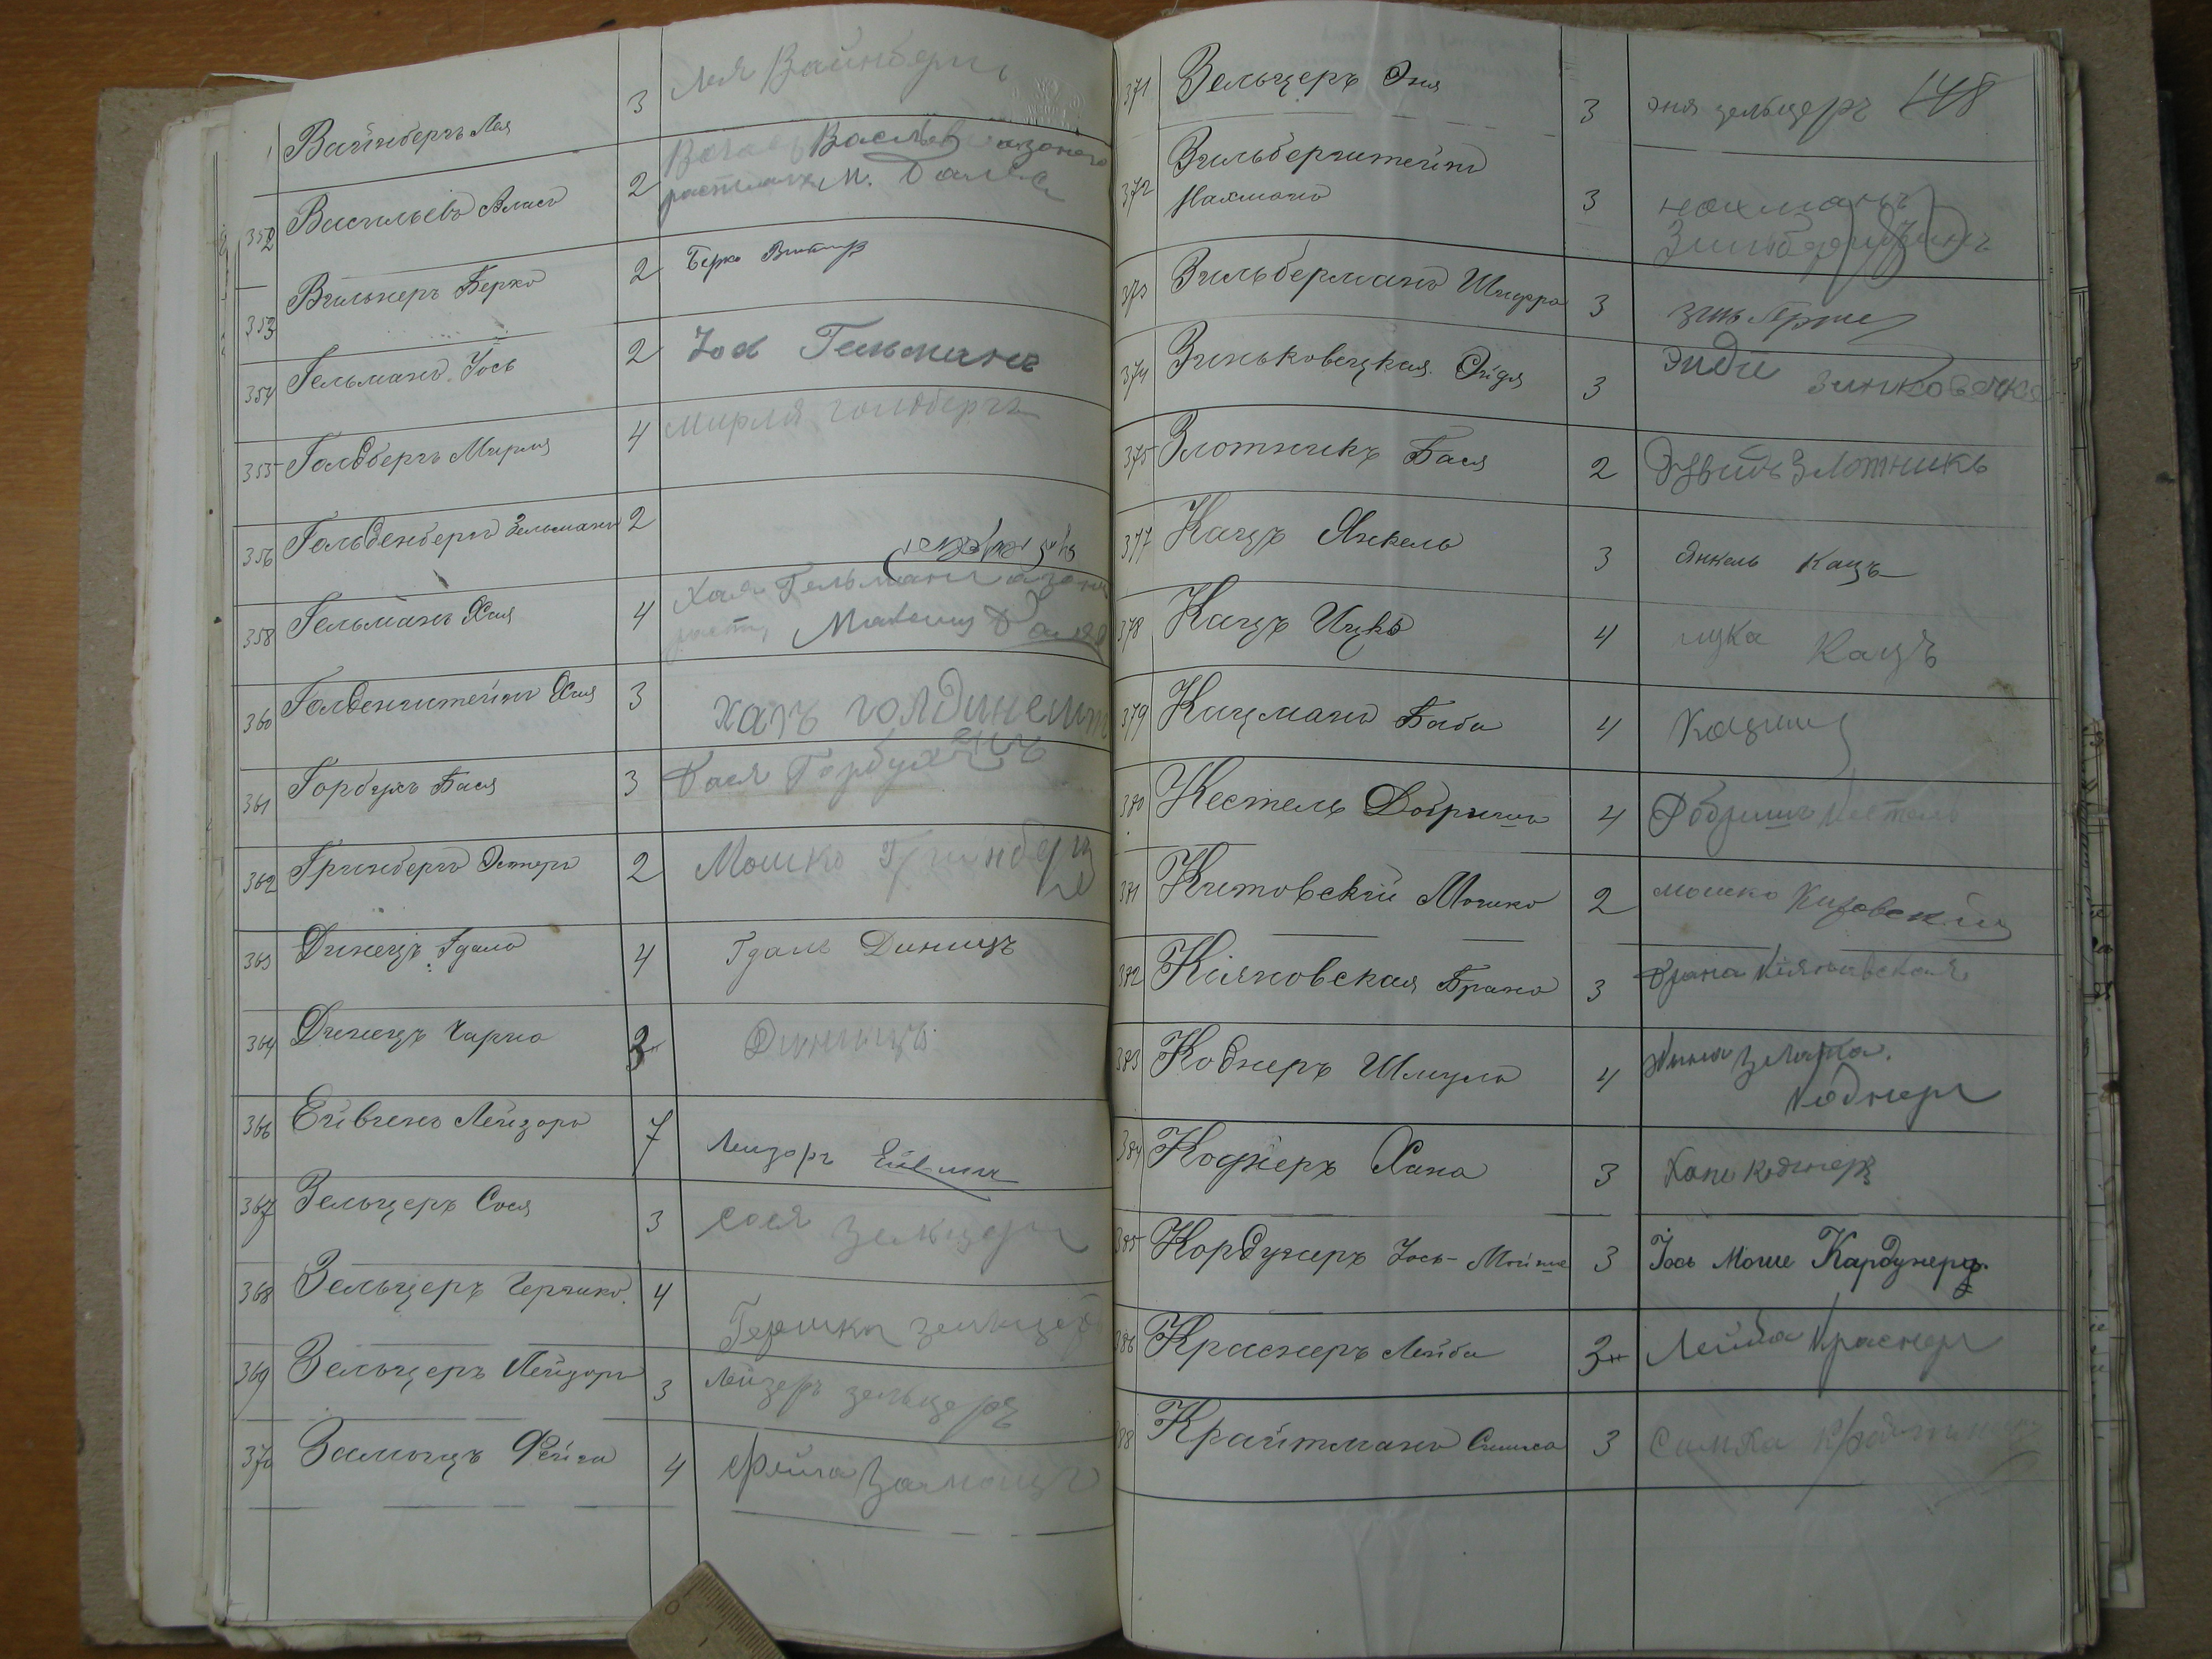 Вайнбергъ Лея 3 Лея Вайнберг
352 Васильевъ Апасъ 2 Васильев азанего
росписался М. Балсо
353 Вильнеръ Берко 2 Берко
354 Гельманъ Іось 2 Іос Гельманъ
355 Голдбергъ Мирля 4 Мирля голдбергъ
356 Гольденбергъ Зельманъ 2
358 Гельманъ Хая 4 Хая Гельманъ азанее
роспи,
360 Голденштейнъ Хая 3 хаяъ голдинешт
361 Горбухъ Бася 3 Бася Горбухъ
362 Гринбергъ Эстеръ 2 Мошко Гринбергъ
363 Динецъ Гдаль 4 Гдаль Диницъ
364 Динецъ Чарна 3 Диницъ
366 Ейвчень Лейзоръ 7 Лейзоръ
367 Зельцеръ Сося 3 сося зельцеръ
368 Зельцеръ Гершко 4 Гершко зельцеръ
369 Зельцеръ Лейзоръ 3 Лейзеръ зельцеръ
370 Замощъ Фейга 4 Фейга Замощъ
148
371 Зельцеръ Эня 3 эня зельцеръ
372 Зильберштейнъ
Нахманъ 3 нахманъ
373 Зильберманъ Шифра 3
374 Зиньковецкая Эйдя 3 Эйди зинковецкая
375 Злотникъ Бася 2 Злотникъ
377 Кацъ Янкель 3 Янкель Кацъ
378 Кацъ Ицко 4 ицка Кацъ
379 Кацманъ Баба 4
380 Кестель Добришъ 4 Добришъ Кестель
371 Китовскій Мошко 2 мошко Китовскій
382 Кіяновская Брана 3 Брана Кіяновская
383 Коднеръ Шмуль 4
Коднеръ
384 Коднеръ Хана 3 Хана Коднеръ
385 Кордунеръ Іось-Мойше 3 Іось Моше Кардунеръ
386 Краснеръ Лейба 3 Лейба Краснеръ
88 Крайтманъ Симха 3 Симха